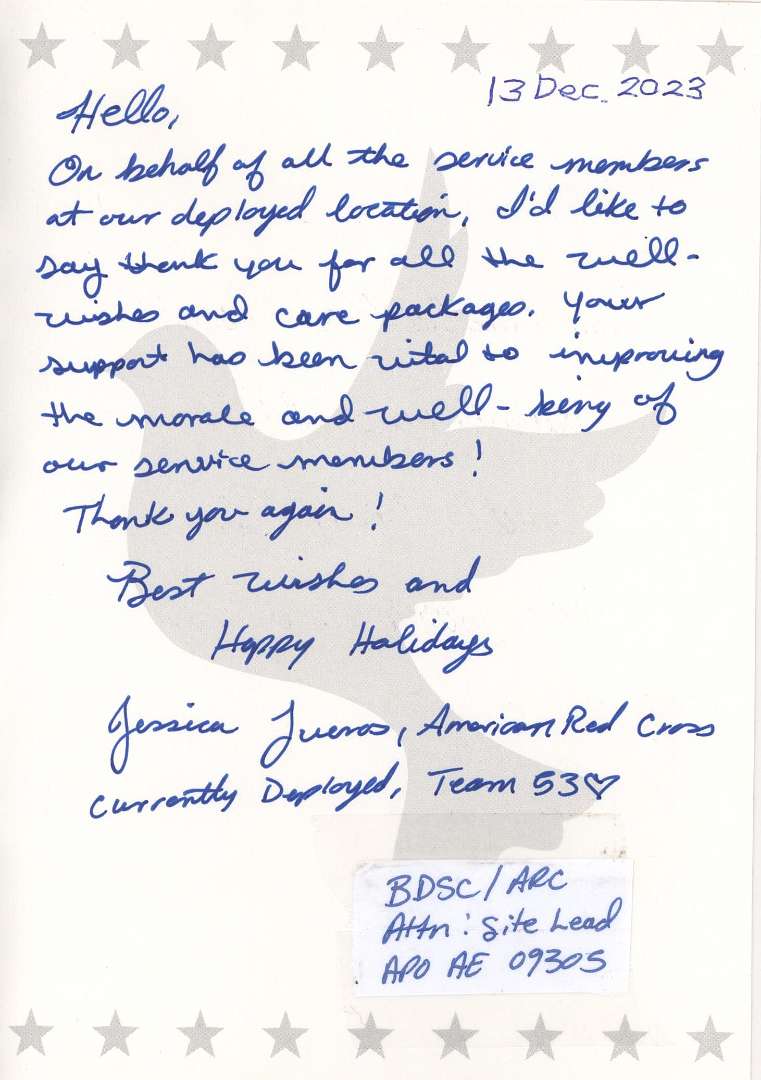 13 Dec. 2023
Hello,
On behalf of all the service members
at our deployed location, I'd like to
say thank you for all the well-
wishes and care packages. Your
support has been vital to improving
the morale and well-being of
our service members!
Thank you again!
Best wishes and
Happy Holidays
Jessica Jueros, American Red Cross
Currently Deployed, Team 53♡
BDSC/ARC
Attn: Site Lead
APO AE 09305